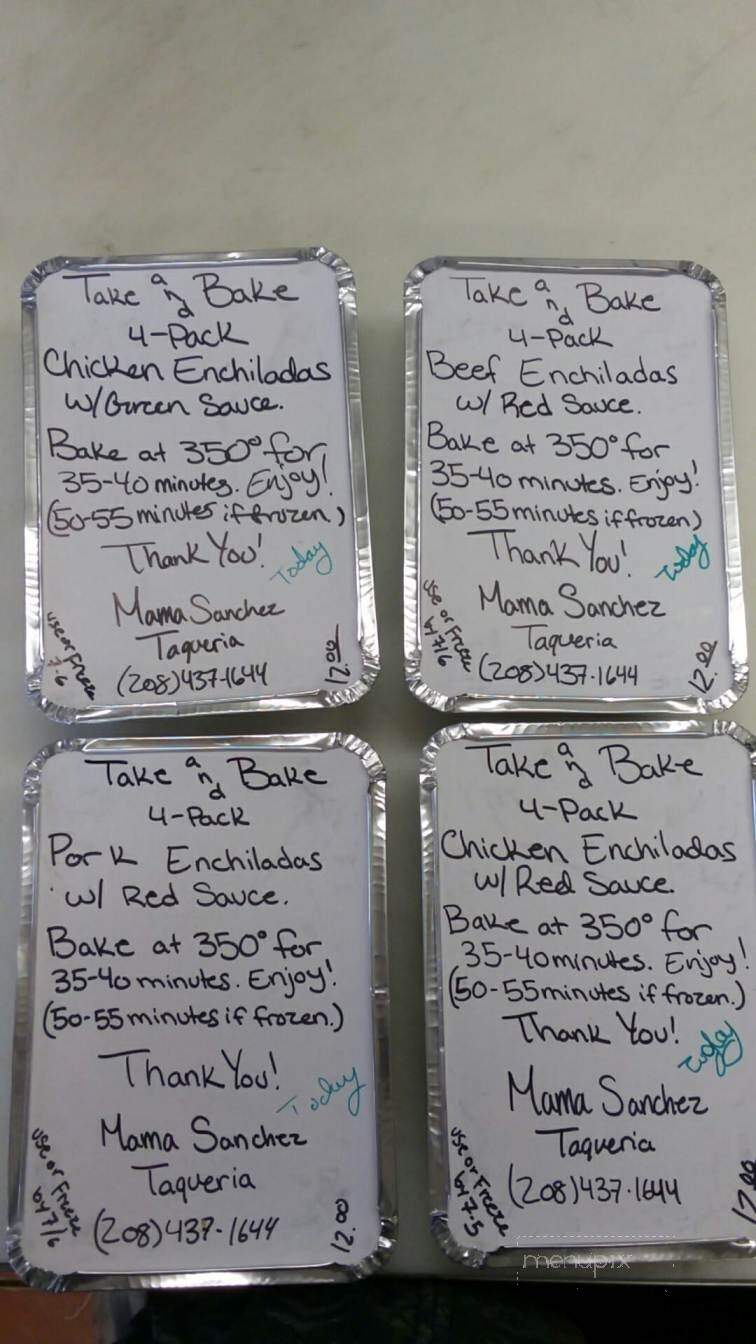 Take and Bake
4-Pack
Chicken Enchiladas
w/Green Sauce.
Bake at 350° for
35-40 minutes. Enjoy!
(50-55 minutes if frozen)
Thank You!
Today
Mama Sanchez
Taqueria
(208)437-1644
use or Freeze
7-6
12.00
Take and Bake
4-Pack
Beef Enchiladas
w/ Red Sauce.
Bake at 350° for
35-40 minutes. Enjoy!
(50-55 minutes if frozen)
Thank You!
Today
Mama Sanchez
Taqueria
(208)437-1644
use or Freeze
by 7/6
12.00
Take and Bake
4-Pack
Pork Enchiladas
w/ Red Sauce.
Bake at 350° for
35-40 minutes. Enjoy!
(50-55 minutes if frozen.)
Thank You!
Today
Mama Sanchez
Taqueria
(208)437-1644
use or Freeze
by 7/6
12.00
Take and Bake
4-Pack
Chicken Enchiladas
w/Red Sauce.
Bake at 350° for
35-40 minutes. Enjoy!
(50-55 minutes if frozen.)
Thank You!
Today
Mama Sanchez
Taqueria
(208)437-1644
use or Freeze
by 7-5
12.00
menupix